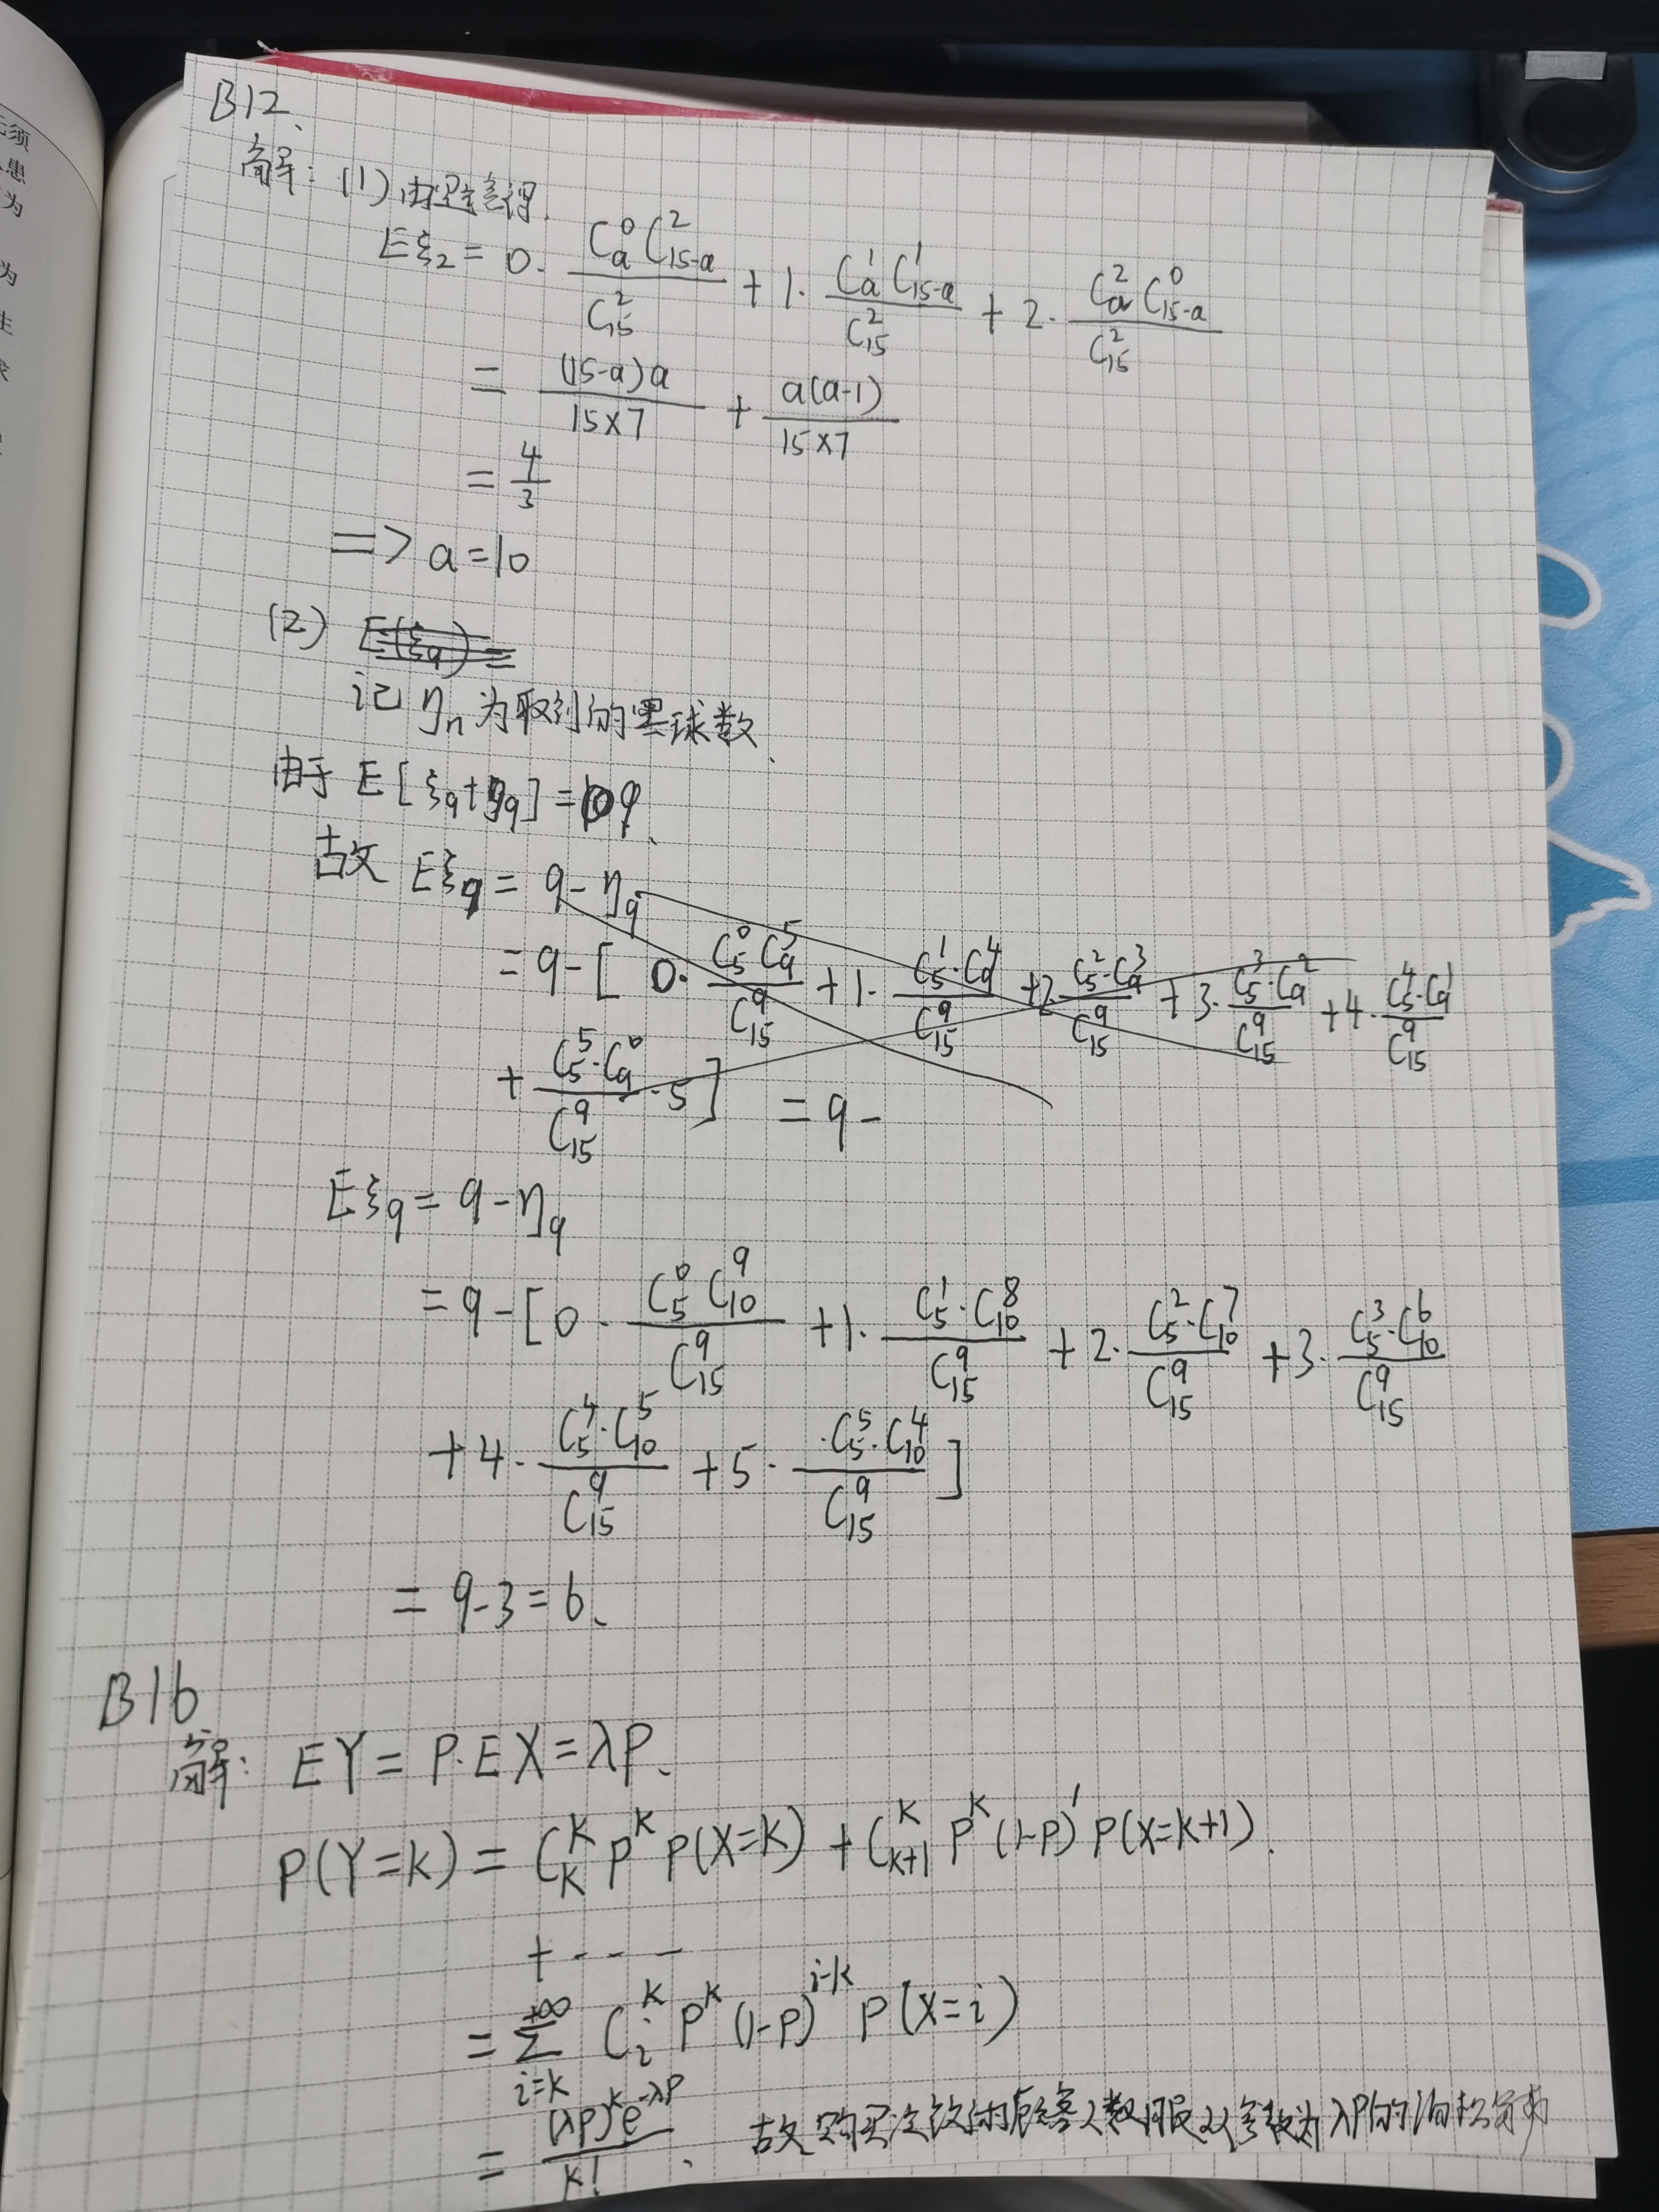 B12、
解：(1) 由题意得.
Eξ₂ = 0·\frac{C_a^0 C_{15-a}^2}{C_{15}^2} + 1·\frac{C_a^1 C_{15-a}^1}{C_{15}^2} + 2·\frac{C_a^2 C_{15-a}^0}{C_{15}^2}
= \frac{(15-a)a}{15×7} + \frac{a(a-1)}{15×7}
= \frac{4}{3}
=> a=10
(2) E(ξ₉)=
记 ηₙ 为取到的黑球数、
由于 E[ξ₉+η₉] = 9、
故 Eξ₉ = 9-η₉
= 9-[0·\frac{C_5^0 C_9^5}{C_{15}^9} + 1·\frac{C_5^1·C_9^4}{C_{15}^9} + 2·\frac{C_5^2·C_9^3}{C_{15}^9} + 3·\frac{C_5^3·C_9^2}{C_{15}^9} + 4·\frac{C_5^4·C_9^1}{C_{15}^9}
+ \frac{C_5^5·C_9^0}{C_{15}^9}·5] = 9-
Eξ₉ = 9-η₉
= 9-[0·\frac{C_5^0 C_{10}^9}{C_{15}^9} + 1·\frac{C_5^1·C_{10}^8}{C_{15}^9} + 2·\frac{C_5^2·C_{10}^7}{C_{15}^9} + 3·\frac{C_5^3·C_{10}^6}{C_{15}^9}
+ 4·\frac{C_5^4·C_{10}^5}{C_{15}^9} + 5·\frac{·C_5^5·C_{10}^4}{C_{15}^9}]
= 9-3=6、
B16
解：EY = P·EX = λP、
P(Y=k) = C_k^k P^k P(X=k) + C_{k+1}^k P^k (1-P)^1 P(X=k+1).
+ - - - -
= \sum_{i=k}^{+∞} C_i^k P^k (1-P)^{i-k} P(X=i)
= \frac{(λP)^k e^{-λP}}{k!}、 故购买次数的顾客人数服从参数为λP的泊松分布